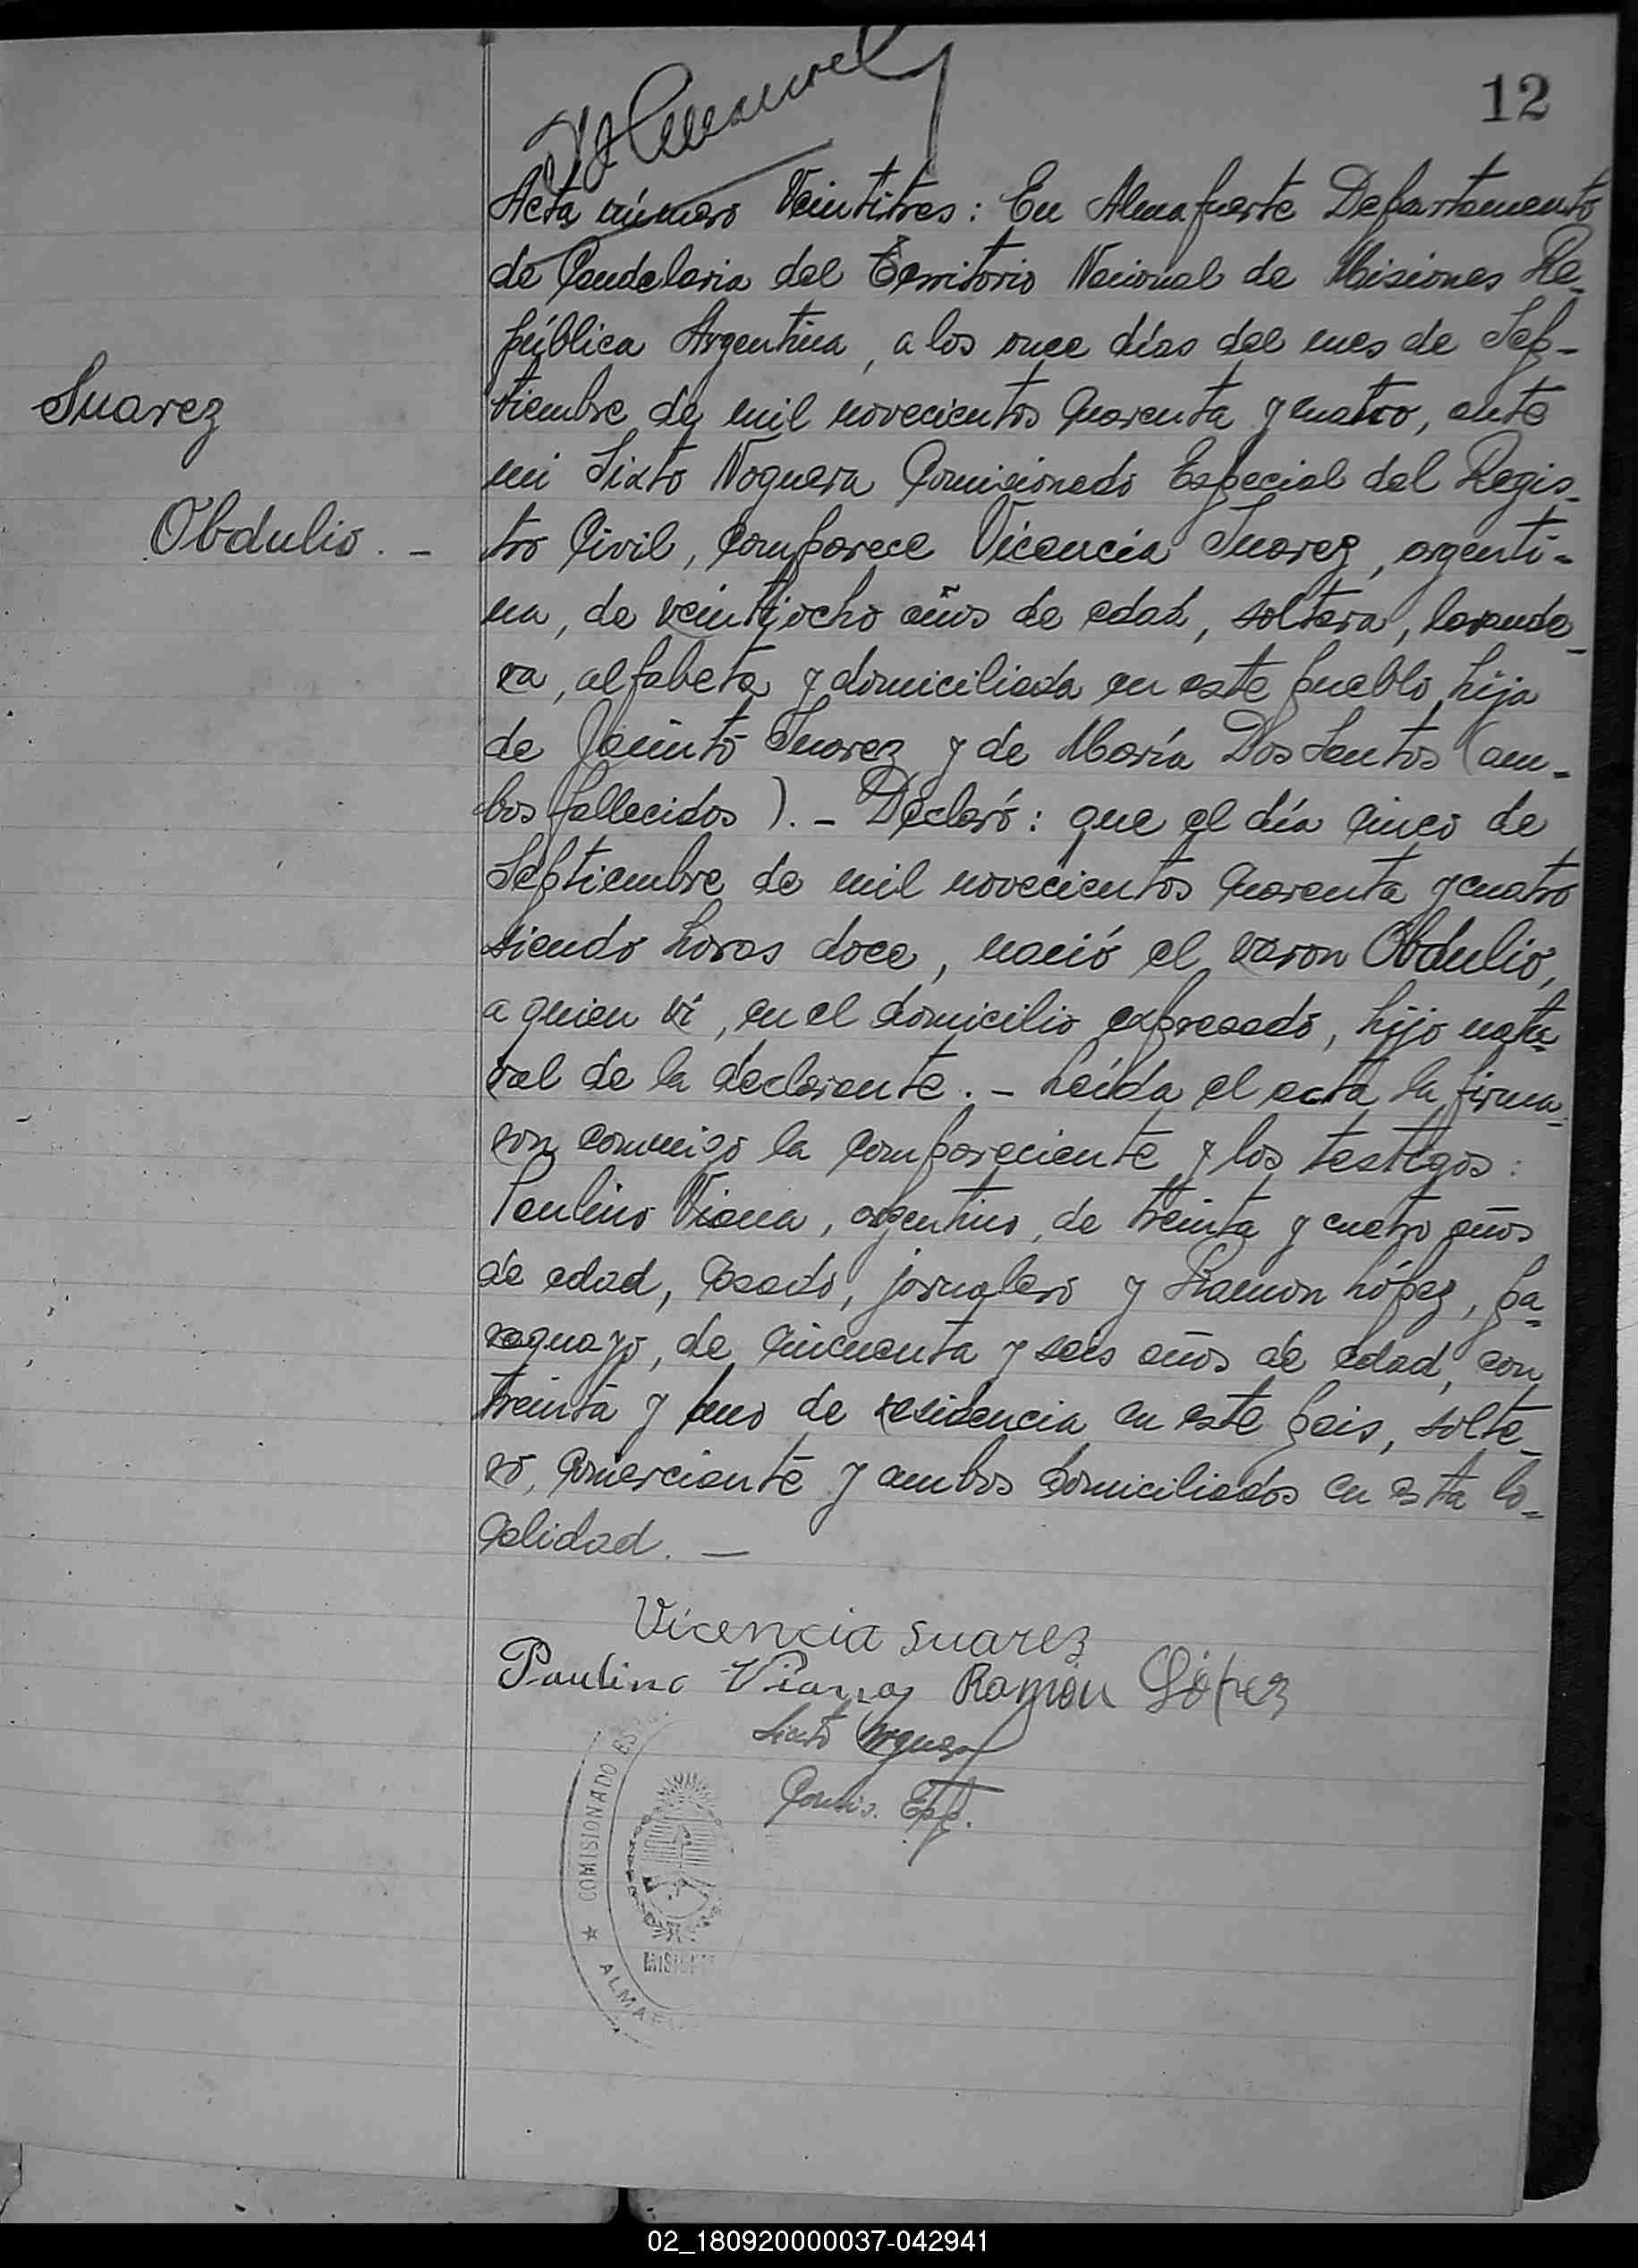 12
Suarez
Obdulio. -
Acta número Veintitres: En Almafuerte Departamento
de Candelaria del Territorio Nacional de Misiones Re-
pública Argentina, a los once días del mes de Sep-
tiembre de mil novecientos cuarenta y cuatro, ante
mi Sixto Noguera Comisionado Especial del Regis-
tro Civil, comparece Vicencia Suarez, argenti-
na, de veintiocho años de edad, soltera, lavande-
ra, alfabeta y domiciliada en este pueblo, hija
de Jacinto Suarez y de María Dos Santos (am-
bos fallecidos). - Declaró: que el día cinco de
Septiembre de mil novecientos cuarenta y cuatro
siendo horas doce, nació el varon Obdulio,
a quien vi, en el domicilio expresado, hijo natu-
ral de la declarante. - Leída el acta la firma-
ron conmigo la compareciente y los testigos:
Paulino Viana, argentino, de treinta y cuatro años
de edad, casado, jornalero y Ramon López, pa-
raguayo, de cincuenta y seis años de edad, con
treinta y uno de residencia en este pais, solte-
ro, comerciante y ambos domiciliados en esta lo-
calidad. -
Vicencia suarez
Paulino Viana Ramón López
Sixto Noguera
Comis. Esp.
COMISIONADO ES
★ ALMAF
MISIONES
02_180920000037-042941